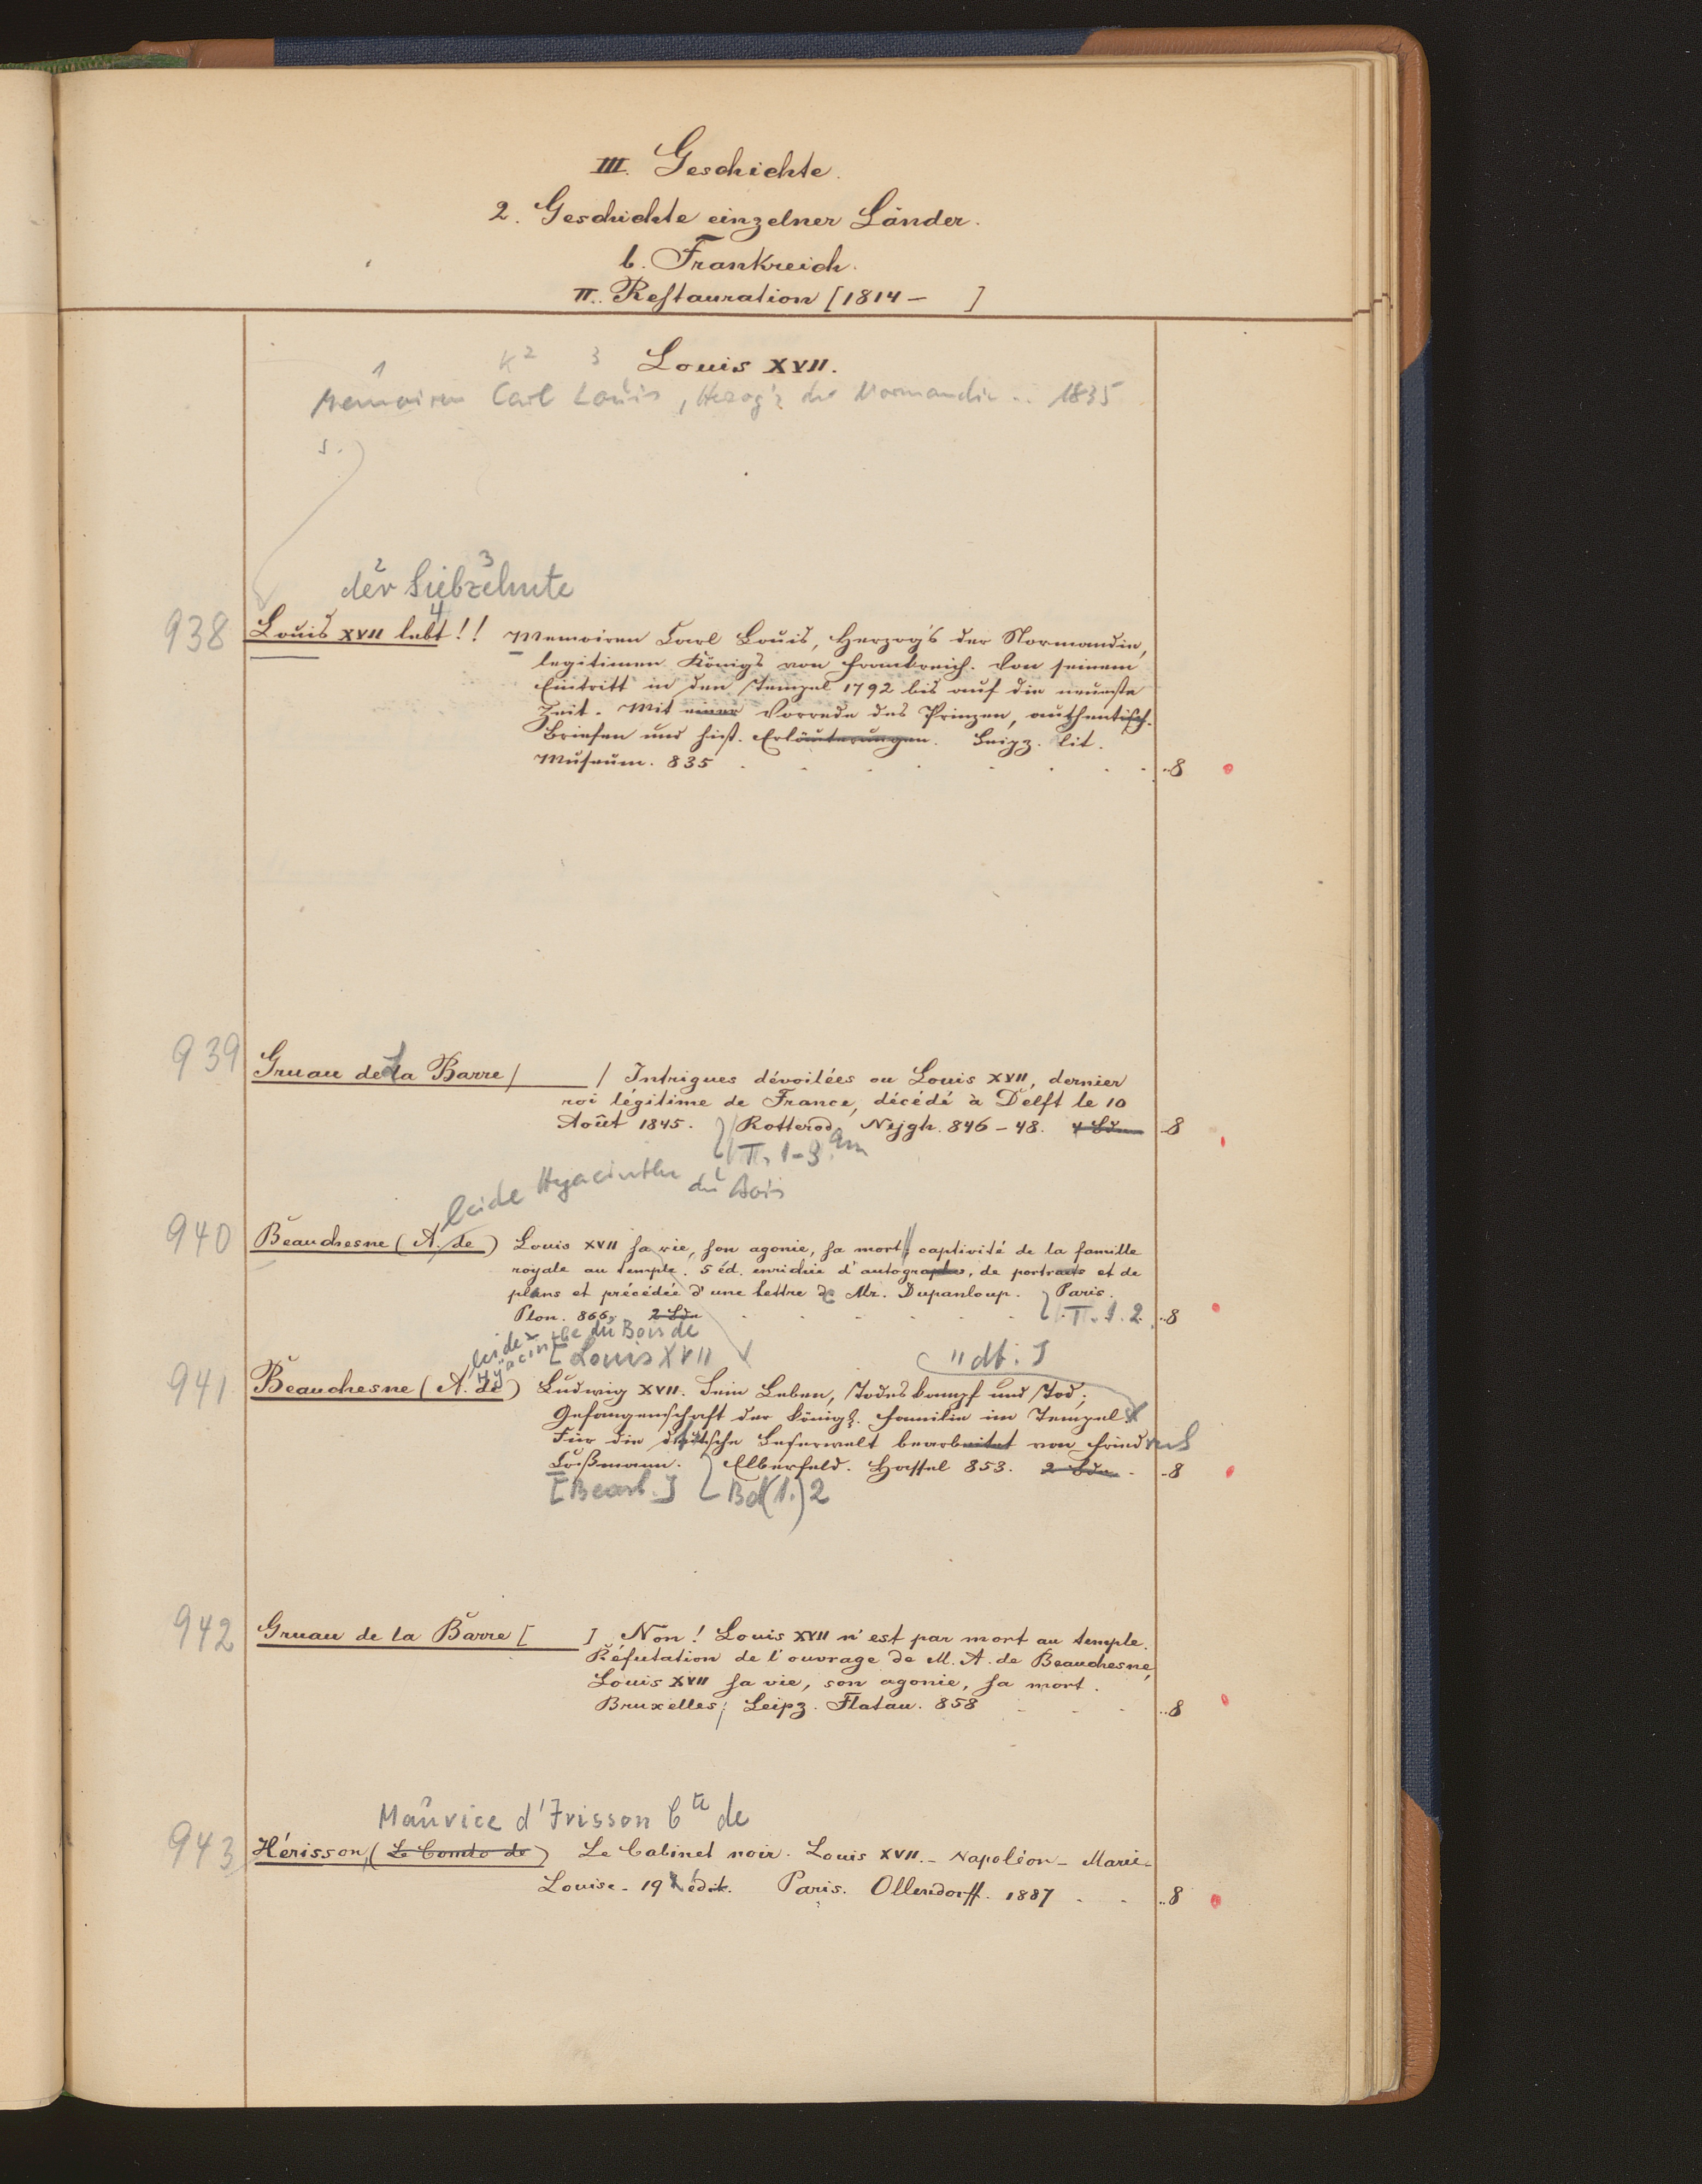 III. Geschichte.
2. Geschichte einzelner Länder.
b. Frankreich.
π. Restauration [1814 –      ]
Louis XVII.
1 K 2 3
Memoiren Carl Louis, Herzog's der Normandie .. 1835
s.
2 3
der Siebzehnte
4
938 Louis XVII lebt!! Memoiren Carl Louis, Herzog's der Normandie,
legitimen Königs von Frankreich. Von seinem
Eintritt in den Tempel 1792 bis auf die neueste
Zeit. Mit einer Vorrede des Prinzen, authentisch.
Briefen und hist. Erläuterungen. Leipz. Lit.
Museum. 835 ..8
939 Gruau de La Barre / / Intrigues dévoilées ou Louis XVII, dernier
roi légitime de France, décédé à Delft le 10
Août 1845. Rotterod. Nijgh. 846–48. 4 Bde ..8
T. 1-3
Hyacinthe du Bois
940 Beauchesne (A. de) Louis XVII sa vie, son agonie, sa mort; captivité de la famille
royale au temple. 5 éd. enrichie d'autographes, de portraits et de
plans et précédée d'une lettre de Mr. Dupanloup. Paris.
Plon. 866, 2 Bde T. 1. 2. ..8
Hyacinthe du Bois de
[Louis XVII " dt. ]
941 Beauchesne (A. de) Ludwig XVII. Sein Leben, Todeskampf und Tod;
Gefangenschaft der königl. Familie im Tempel
Für die deutsche Leserwelt bearbeitet von Friedrich
Loßmann. Elberfeld. Hassel 853. 2 Bde. ..8
[Bearb.] Bd (1.) 2
942 Gruau de la Barre [ ] Non! Louis XVII n'est par mort au temple.
Réfutation de l'ouvrage de M. A. de Beauchesne,
Louis XVII sa vie, son agonie, sa mort.
Bruxelles; Leipz. Flatau. 858 ..8
Maurice d'Irisson Cte de
943 Hérisson, (Le Comte de) Le Cabinet noir. Louis XVII. – Napoléon – Marie-
Louise. 19 édit. Paris. Ollendorff. 1887 ..8